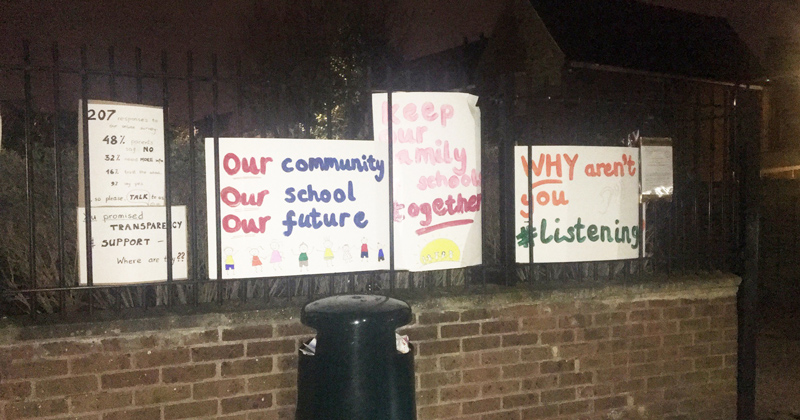 207 responses to
48% parents
say NO
32% need MORE info
16%
so please TALK to
you promised
TRANSPARENCY
& SUPPORT -
Where are they??
Our community
Our school
Our future
Keep
our
family
schools
together
WHY aren't
you
#listening